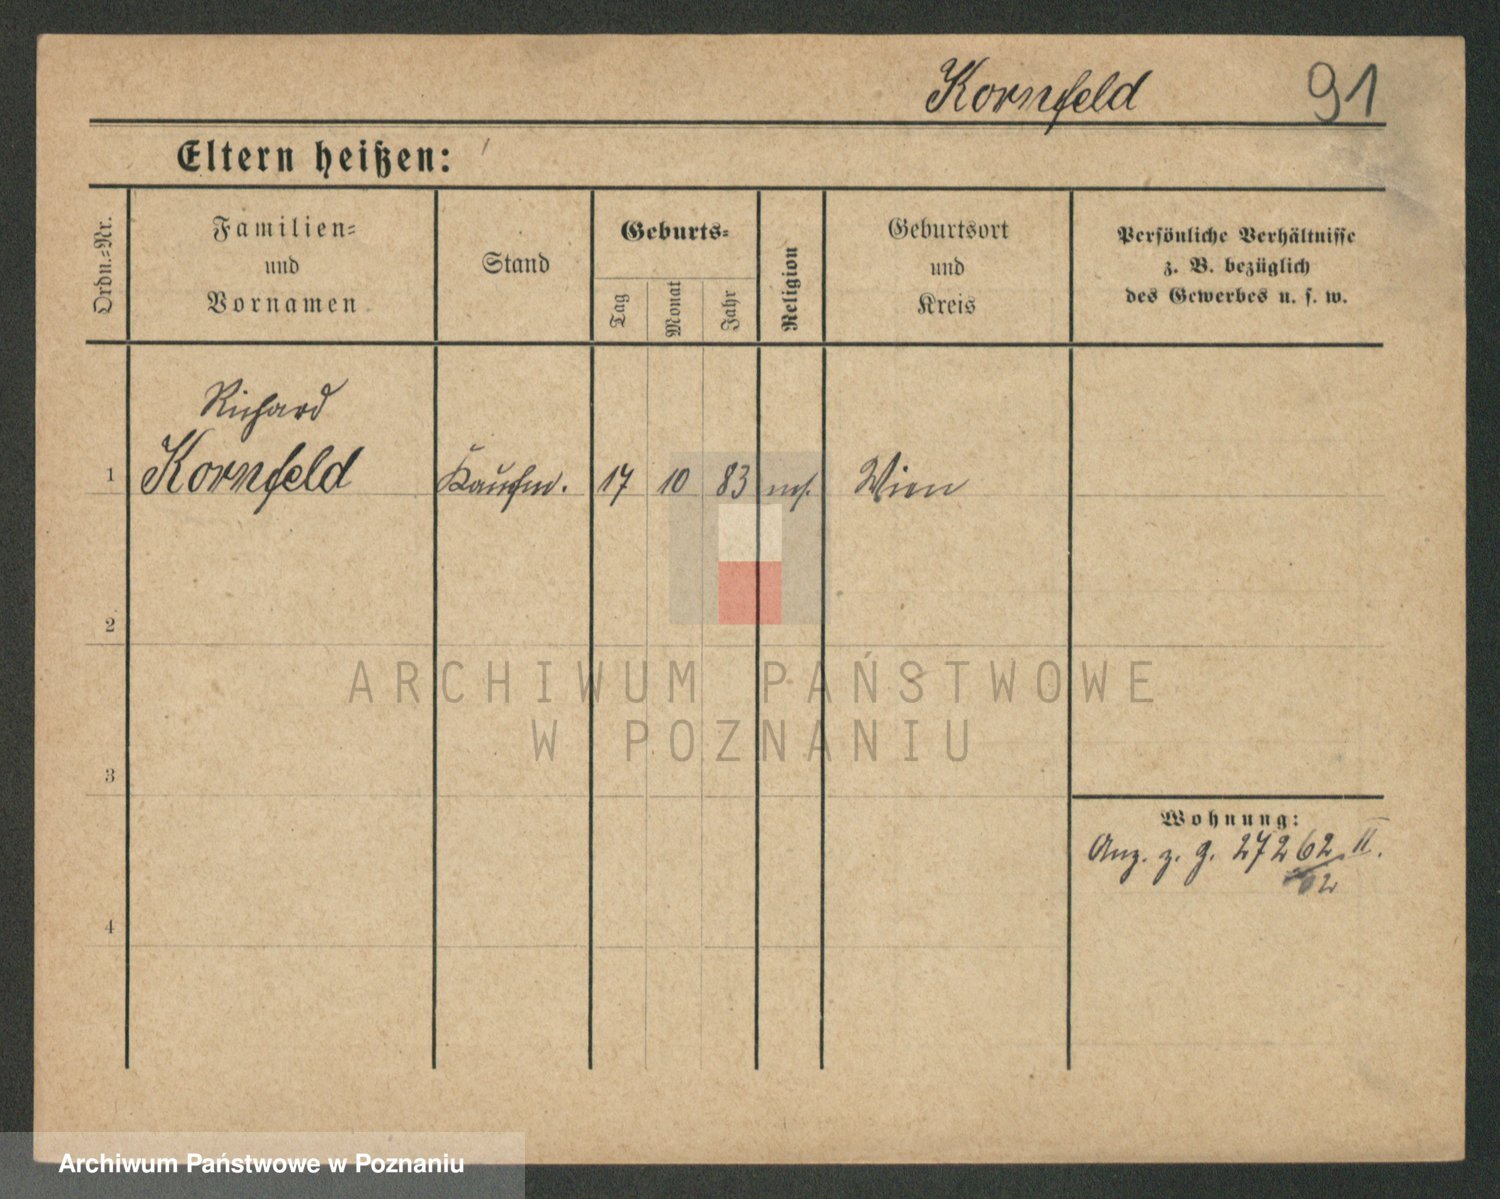 Kornfeld 91
Eltern heißen:
Ordn.=Nr.
Familien=
und
Vornamen
Stand
Geburts=
Tag
Monat
Jahr
Religion
Geburtsort
und
Kreis
Persönliche Verhältnisse
z. B. bezüglich
des Gewerbes u. s. w.
Richard
1 Kornfeld Kaufm. 17 10 83 Wien
2
3
4
Wohnung:
Anz. z. g. 27262 II.
02
ARCHIWUM PAŃSTWOWE
W POZNANIU
Archiwum Państwowe w Poznaniu